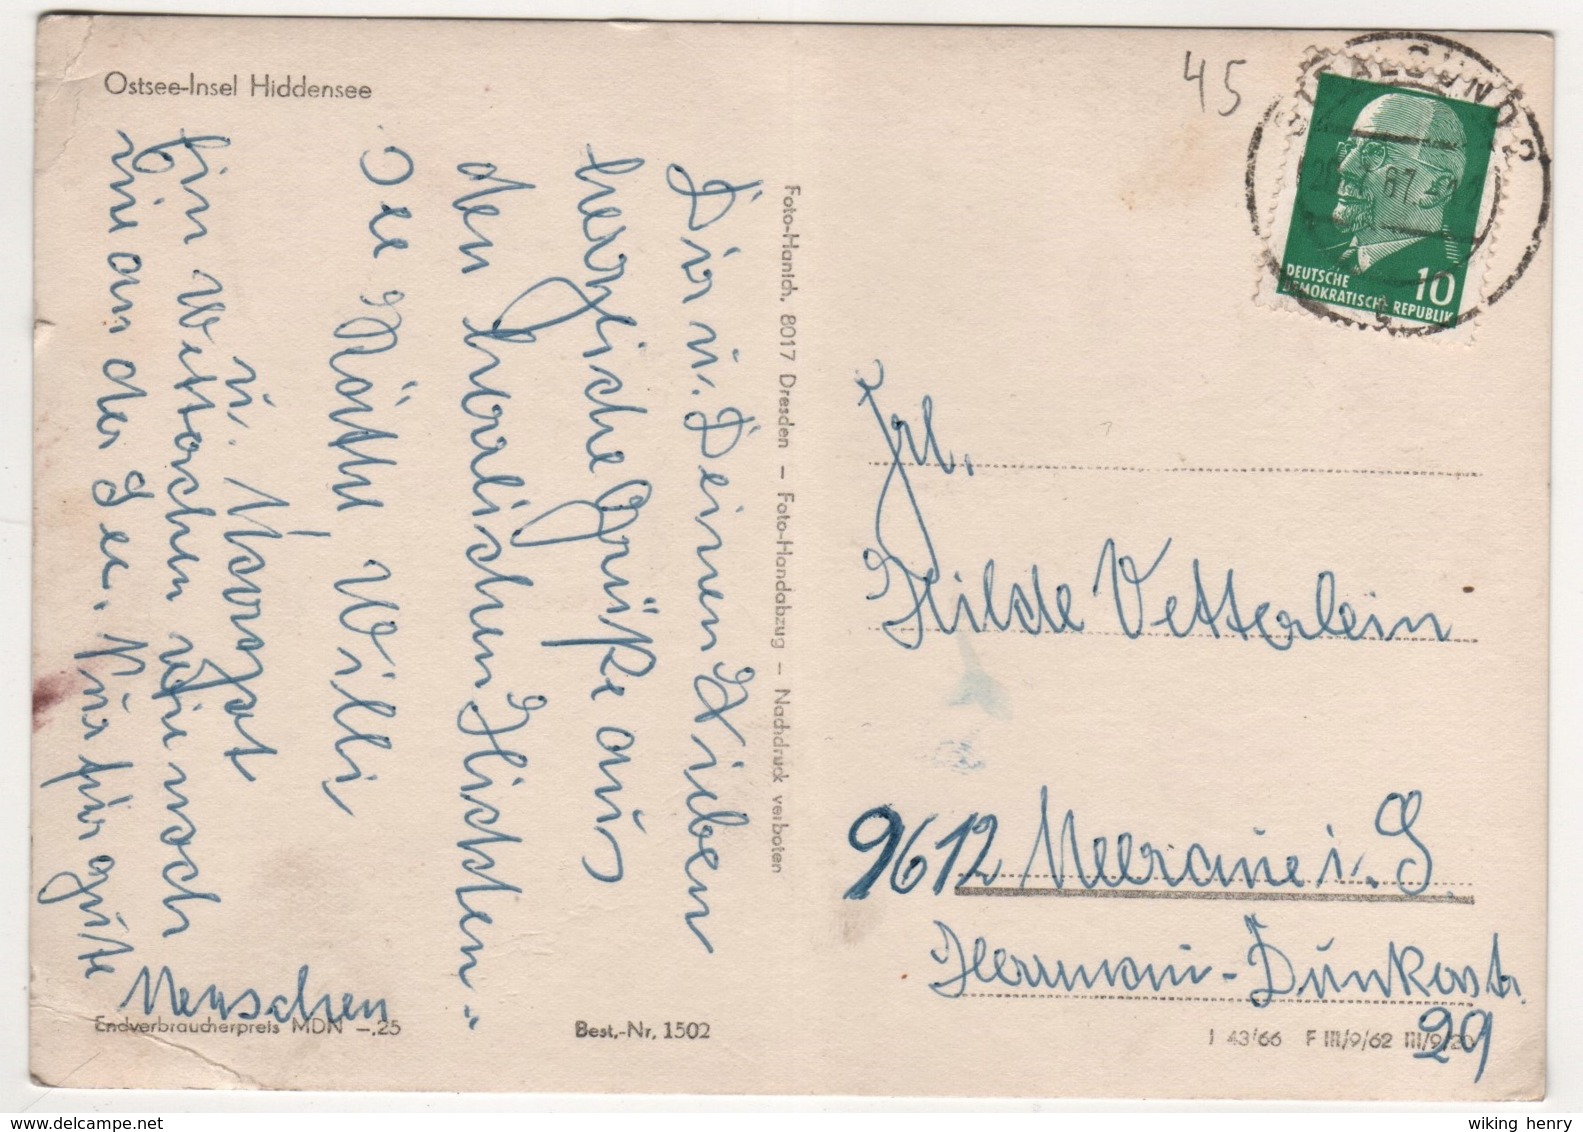 Ostsee-Insel Hiddensee
Dir u. Deinen Lieben
herzliche Grüße aus
den herrlichen
See
Käthe, Willi
u. Margot
Ein Wetterchen wie noch
nie an der See. Nur für gute
Menschen
Endverbraucherpreis MDN –.25
Best.-Nr. 1502
Foto-Hanich, 8017 Dresden – Foto-Handabzug – Nachdruck verboten
45
STRALSUND 2
67
DEUTSCHE
DEMOKRATISCHE REPUBLIK
10
Frl.
Hilde Vetterlein
9612 Meerane i. S.
Hermann-Dunkerstr.
29
I 43/66 F III/9/62 III/9/20
wiking henry